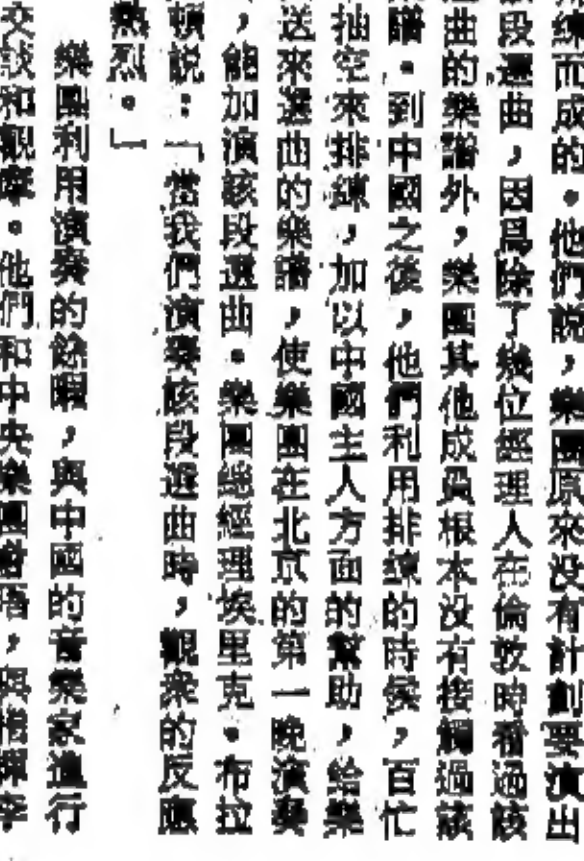 練而成的。他們說，樂團原來没有計劃要演出
段選曲，因爲除了幾位經理人在倫敦時看過該
曲的樂譜外，樂團其他成員根本没有接觸過該
譜。到中國之後，他們利用排練的時候，百忙
抽空來排練，加以中國主人方面的幫助，給樂
送來選曲的樂譜，使樂團在北京的第一晚演奏
，能加演該段選曲。樂團總經理埃里克。布拉
頓説：「當我們演奏該段選曲時，觀衆的反應
熱烈。」
樂團利用演奏的餘暇，與中國的音樂家進行
交談和觀摩。他們和中央樂團會晤，與指揮李